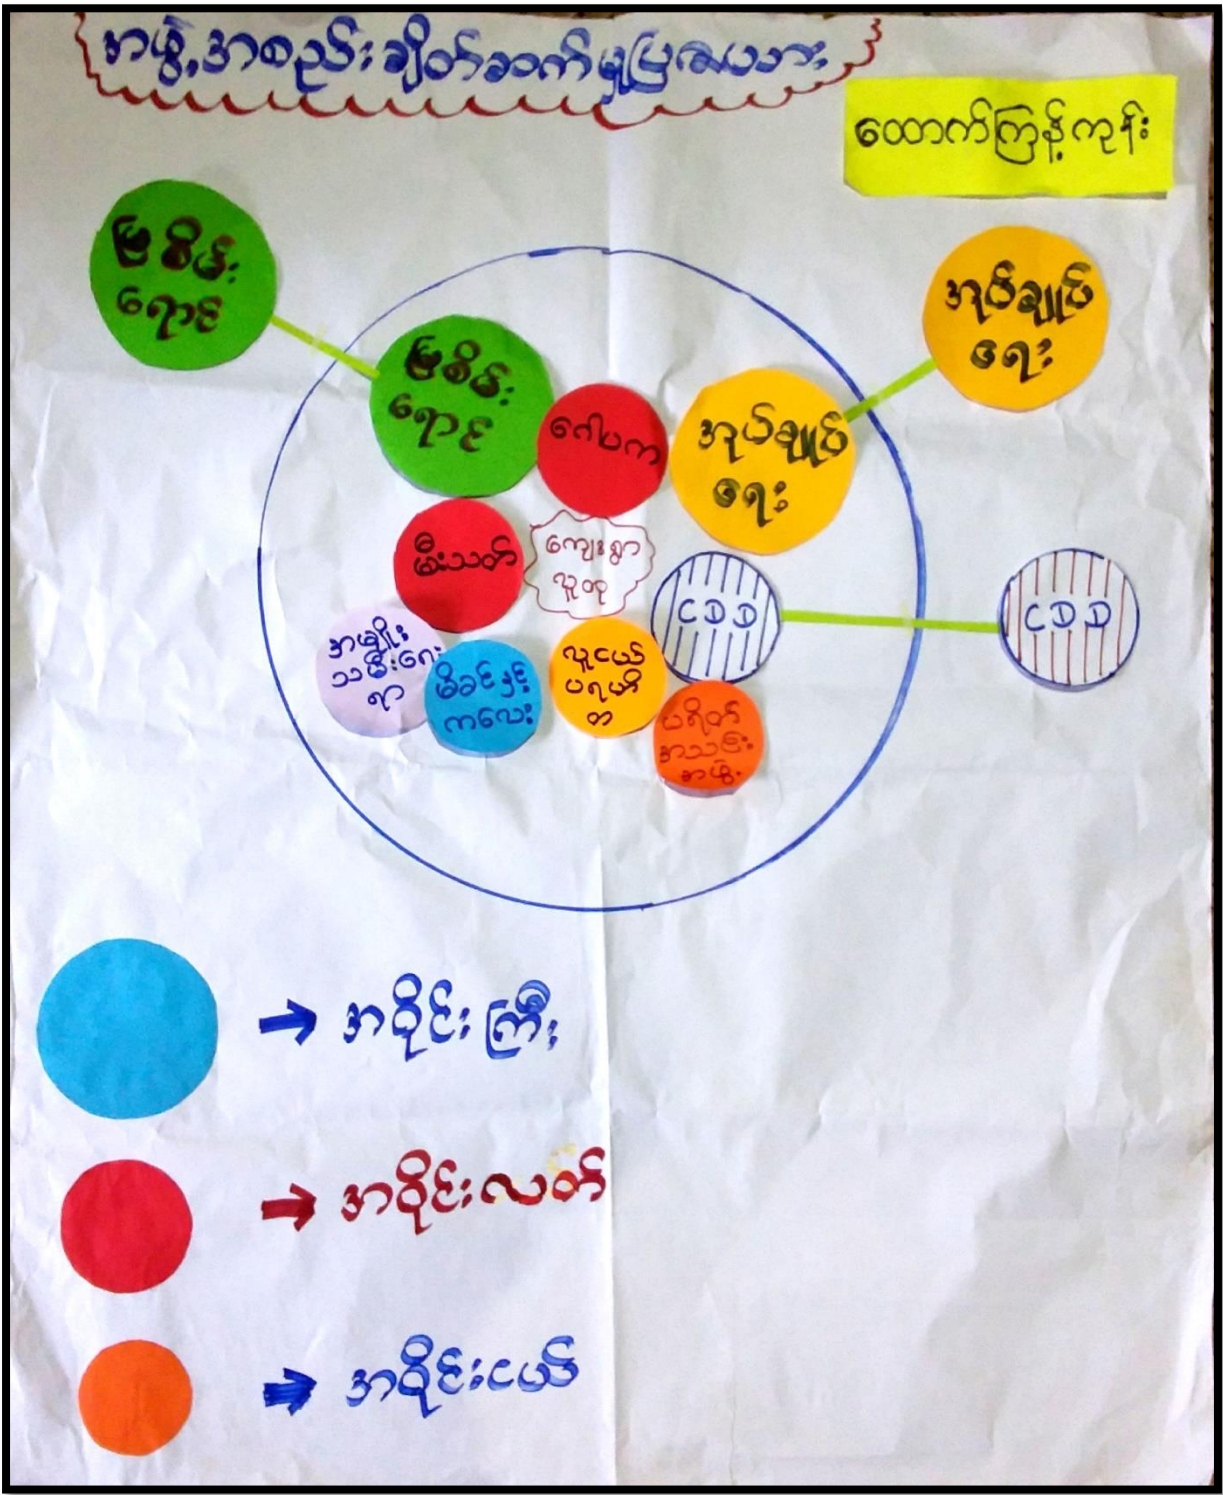 အဖွဲ့အစည်းချိတ်ဆက်မှုပြ
ထောက်ကြန့်ကုန်း
မြစိမ်း
ရောင်
အုပ်ချုပ်
ရေး
မြစိမ်း
ရောင်
ဂေါပက
အုပ်ချုပ်
ရေး
မီးသတ်
ကျေးရွာ
လူထု
CDD
CDD
အမျိုး
သမီးရေး
ရာ
မိခင်နှင့်
ကလေး
လူငယ်
ပရဟိ
တ
ပရိတ်
အသင်း
အဖွဲ့
အဝိုင်းကြီး
အဝိုင်းလတ်
အဝိုင်းငယ်